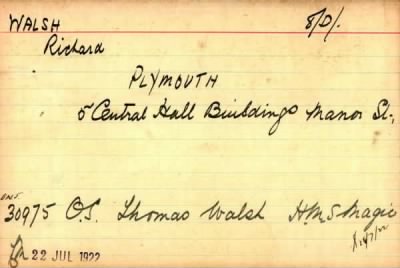 WALSH 8/D/.
Richard
PLYMOUTH
5 Central Hall Buildings Manor St.,
30975 O.S. Thomas Walsh H.M.S Magic
22 JUL 1922